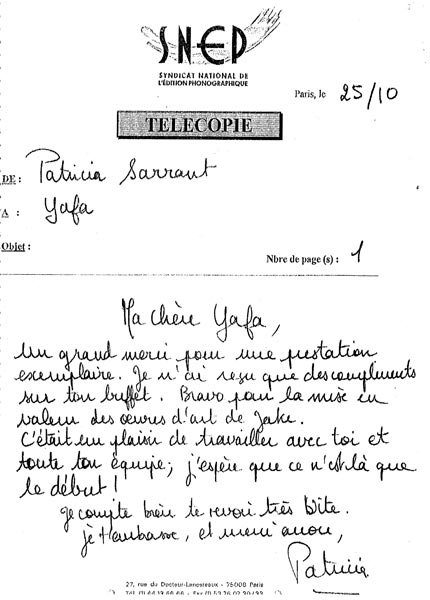 SNEP
SYNDICAT NATIONAL DE
L'ÉDITION PHONOGRAPHIQUE
Paris, le 25/10
TELECOPIE
DE : Patricia Sarrant
A : Yafa
Objet :
Nbre de page (s) : 1
Ma chère Yafa,
Un grand merci pour une prestation
exemplaire. Je n'ai reçu que des compliments
sur ton buffet. Bravo pour la mise en
valeur des oeuvres d'art de Jake.
C'était un plaisir de travailler avec toi et
toute ton équipe, j'espère que ce n'est là que
le début !
Je compte bien te revoir très vite.
je t'embrasse, et merci encore,
Patricia
27, rue du Docteur-Lancereaux - 75008 Paris